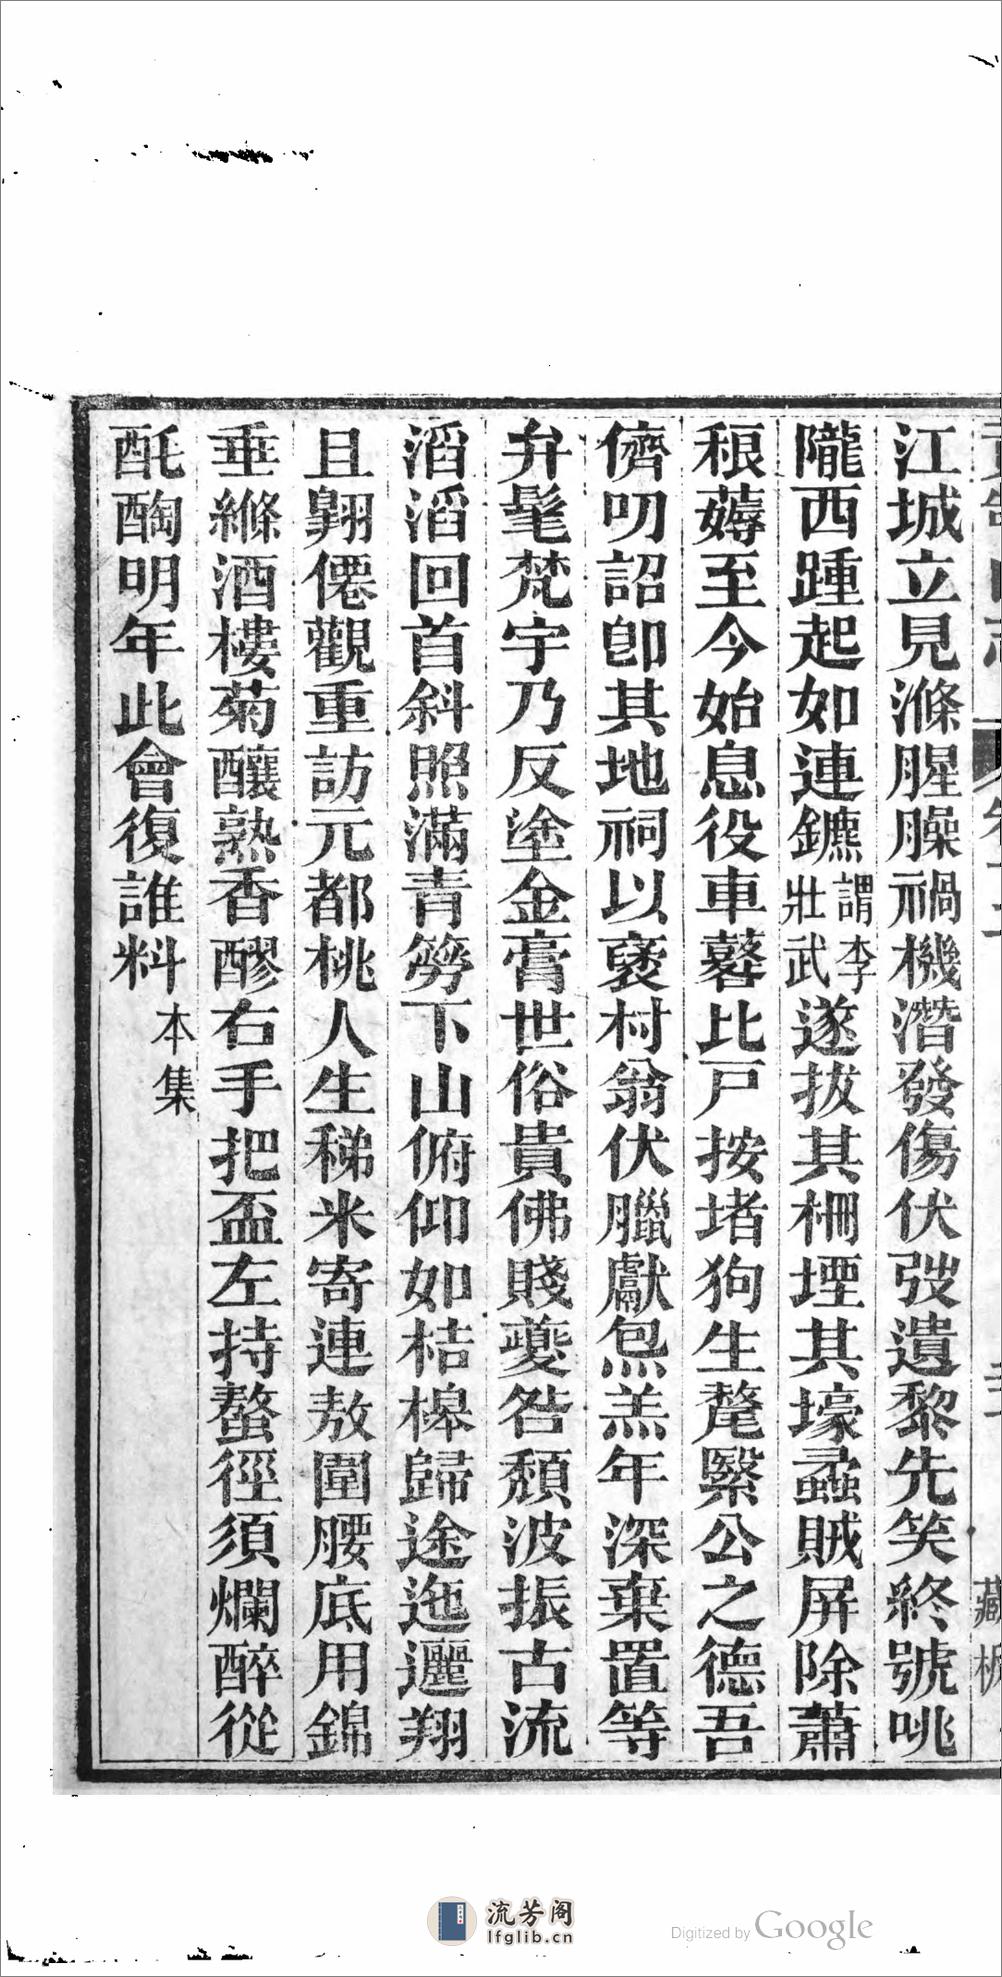 江城立見滌腥臊禍機潛發傷伏弢遺黎先笑終號咷
隴西踵起如連鑣謂李壯武遂拔其柵堙其壕蟊賊屏除蕭
稂薅至今始息役車鼛比戸按堵狗生氂緊公之德吾
儕叨詔卽其地祠以褒村翁伏臘獻炰羔年深棄置等
弁髦梵宇乃反塗金膏世俗貴佛賤夔咎頹波振古流
滔滔回首斜照滿青簩下山俯仰如桔槔歸途迤邐翔
且翺僊觀重訪元都桃人生稊米寄連敖圍腰底用錦
垂縧酒樓菊釀熟香醪右手把盃左持螯徑須爛醉從
酕醄明年此會復誰料本集
藏板
流芳阁
lfglib.cn
Digitized by Google